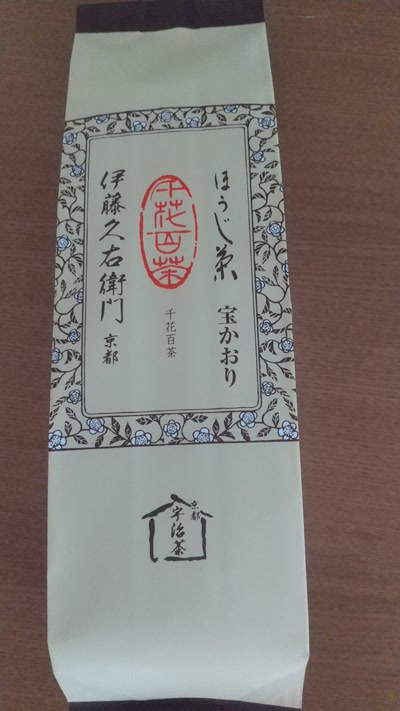 ほうじ茶 宝かおり
千花百茶
千花百茶
伊藤久右衛門 京都
京都
宇治茶